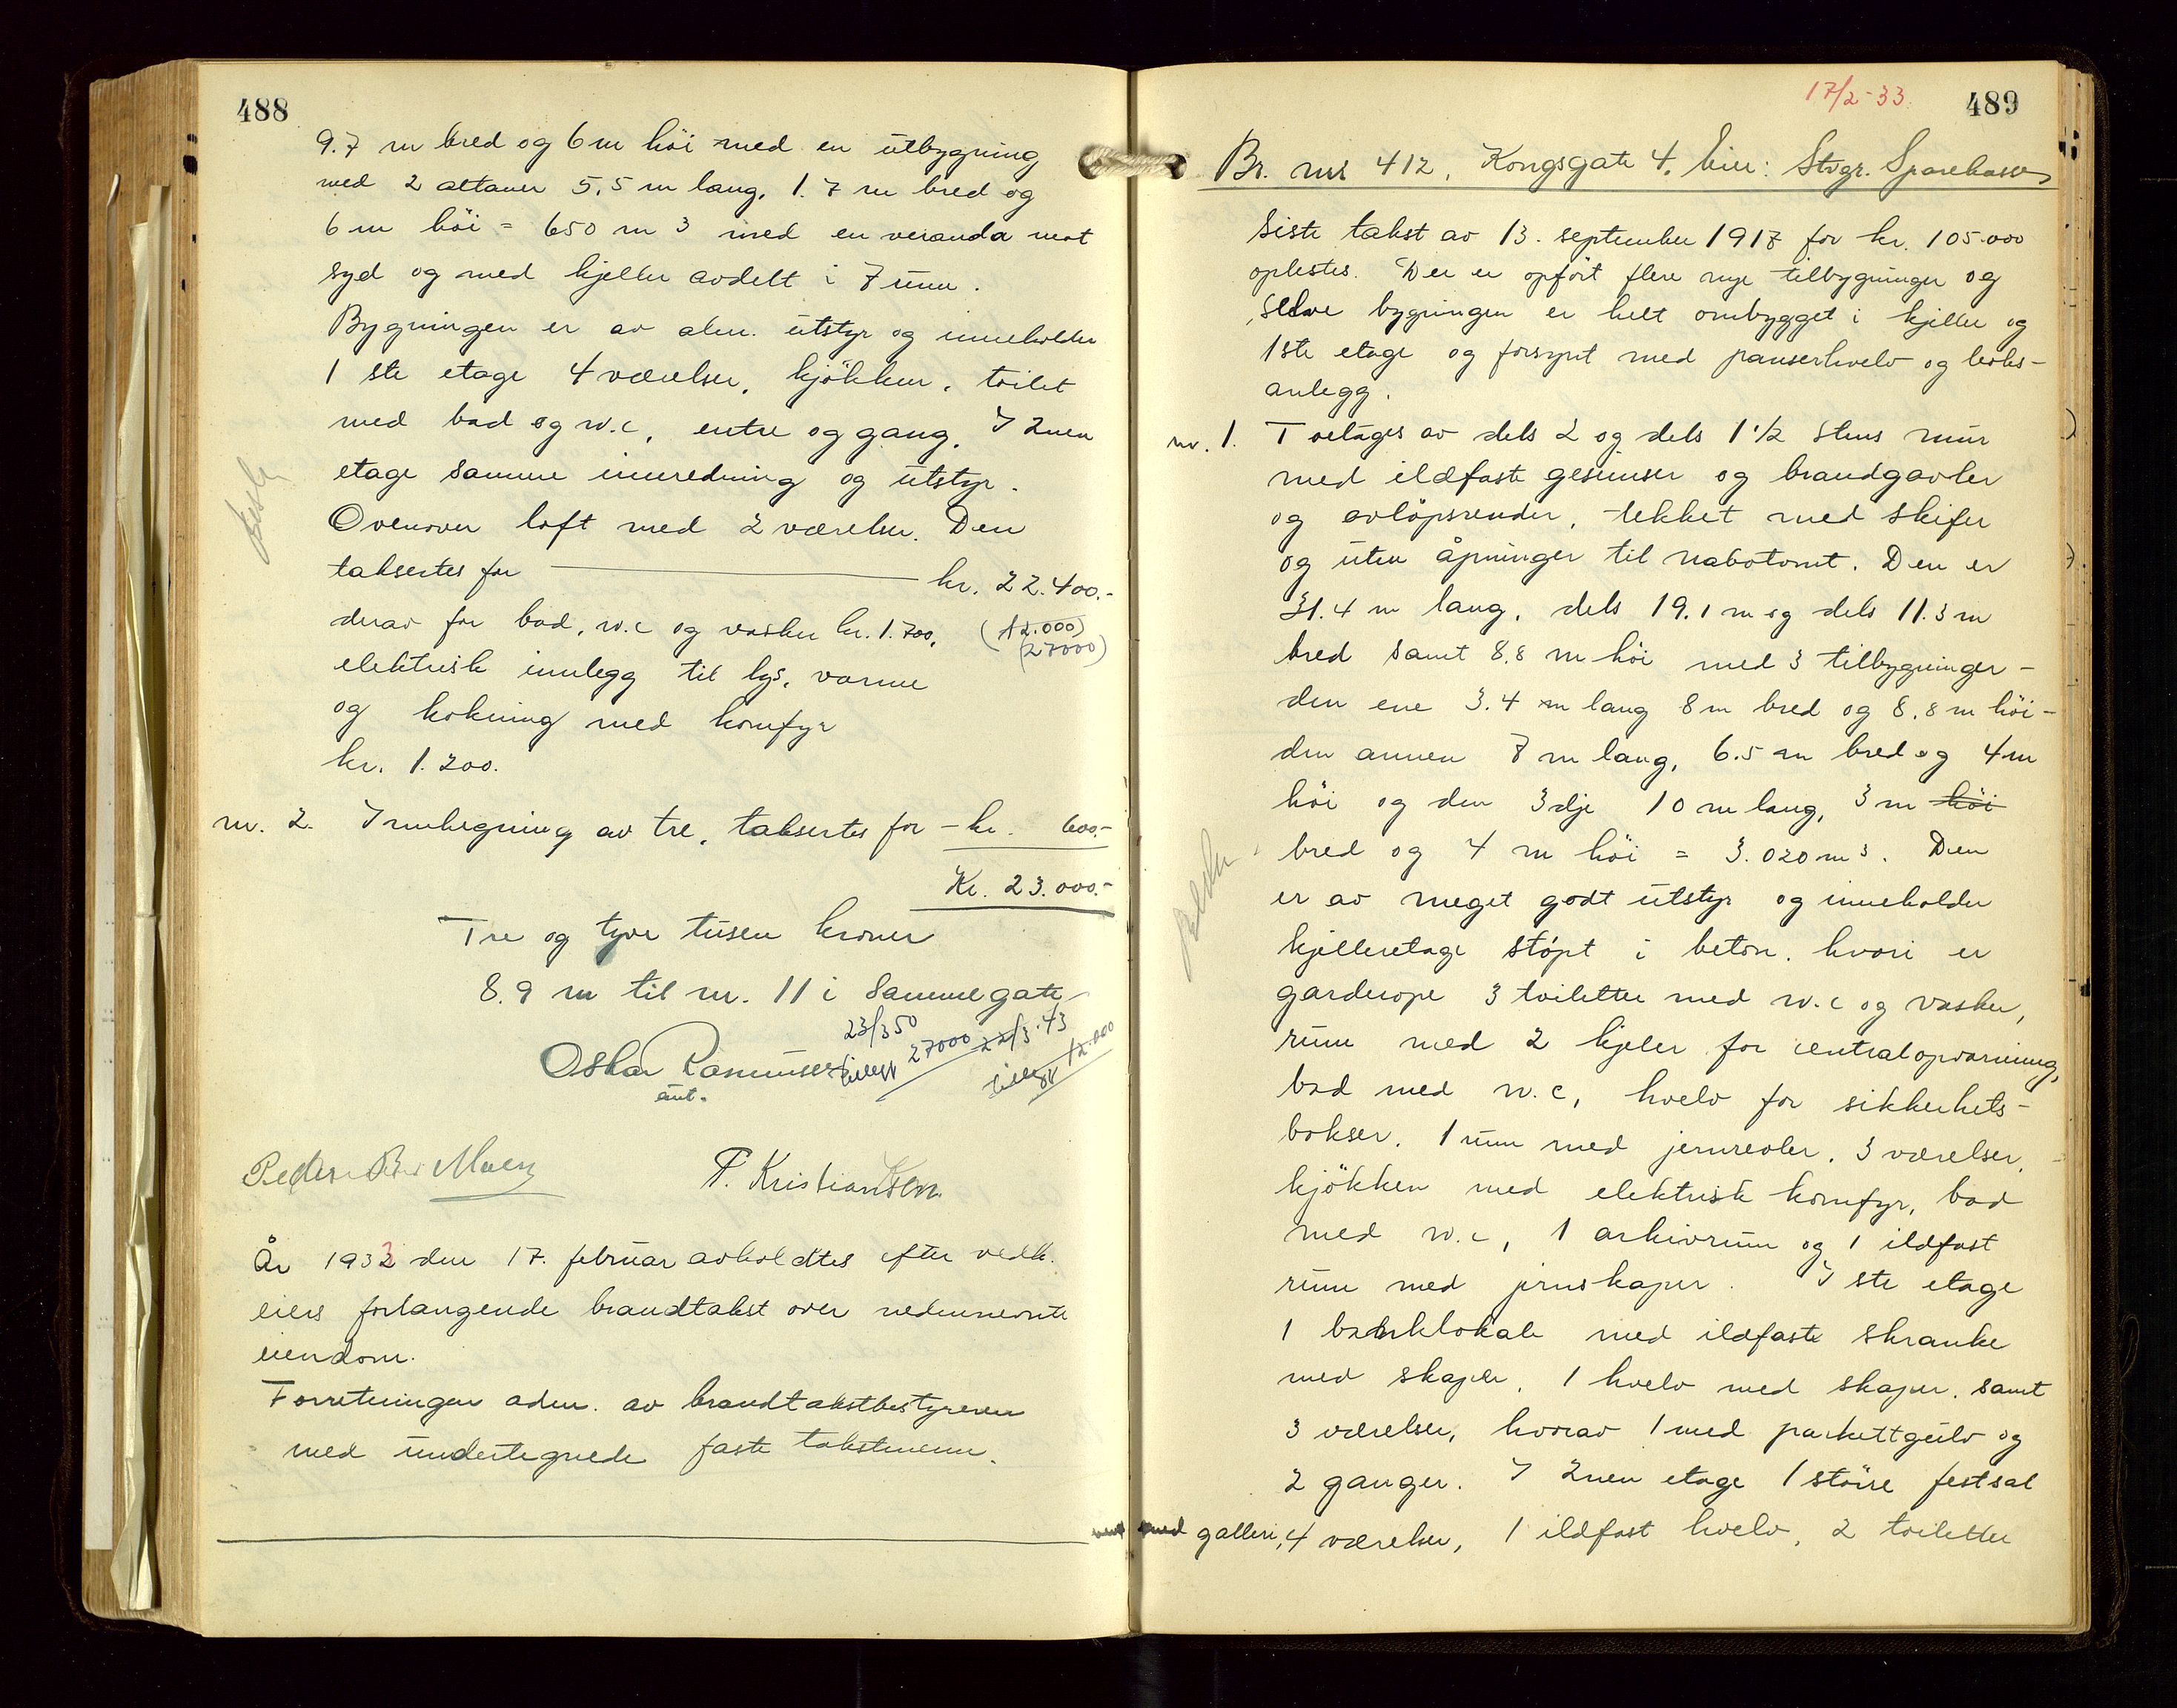 488
9.7 m bred og 6 m höi med en utbygning
med 2 altaner 5,5 m lang, 1.7 m bred og
6 m höi = 650 m3 med en veranda mot
syd og med kjeller avdelt i 7 rum.
Bygningen er av alm. utstyr og inneholder
1 ste etage 4 værelser, kjökken, toilet
med bad og w.c, entre og gang. I 2nen
etage samme innredning og utstyr.
Ovenover loft med 2 værelser. Den
taksertes for kr. 22.400.-
derav for bad, w.c og vasker kr. 1.700, (12.000)
(27000)
elektrisk innlegg til lys, varme
og kokning med komfyr
kr. 1.200.
nr. 2. Innhegning av tre, taksertes for - kr. 600.-
Kr. 23.000.-
Tre og tyve tusen kroner
8.9 m til nr. 11 i samme gate
23/3 50 27000 22/3.43
tillegg tillegg 12.000
Oskar Rasmussen
ant.
Peder Moen
T. Kristiansen
År 1933 den 17. februar avholdtes efter vedk.
eiers forlangende brandtakst over nedennevnte
eiendom.
Forretningen adm. av brandtakstbestyreren
med undertegnede faste takstmenn.
17/2-33.
489
Br. nr 412, Kongsgate 4. Eier: Stvgr. Sparekasse
Siste takst av 13. september 1917 for kr. 105.000
oplestes. Der er opført flere nye tilbygninger og
selve bygningen er helt ombygget i kjeller og
1ste etage og forsynt med panserhvelv og boks-
anlegg.
nr. 1. Toetages av dels 2 og dels 1 1/2 stens mur
med ildfaste gesimser og brandgavler
og avlöpsrender, tekket med skifer
og uten åpninger til nabotomt. Den er
31.4 m lang, dels 19.1 m og dels 11.3 m
bred samt 8.8 m höi med 3 tilbygninger -
den ene 3.4 m lang 8 m bred og 8.8 m höi -
den annen 7 m lang, 6.5 m bred og 4 m
höi og den 3dje 10 m lang, 3 m höi
bred og 4 m höi = 3.020 m3. Den
er av meget godt utstyr og inneholder
kjelleretage støpt i beton, hvori er
garderope 3 toiletter med w.c og vasker,
rum med 2 kjeler for centralopvarming,
bad med w.c, hvelv for sikkerhets-
bokser, 1 rum med jernreoler, 3 værelser,
kjökken med elektrisk komfyr, bad
med w.c, 1 arkivrum og 1 ildfast
rum med jernskaper. I ste etage
1 banklokale med ildfaste skranke
med skaper, 1 hvelv med skaper, samt
3 værelser, hvorav 1 med parkettgulv og
2 ganger. I 2nen etage 1 större festsal
med galleri, 4 værelser, 1 ildfast hvelv, 2 toiletter